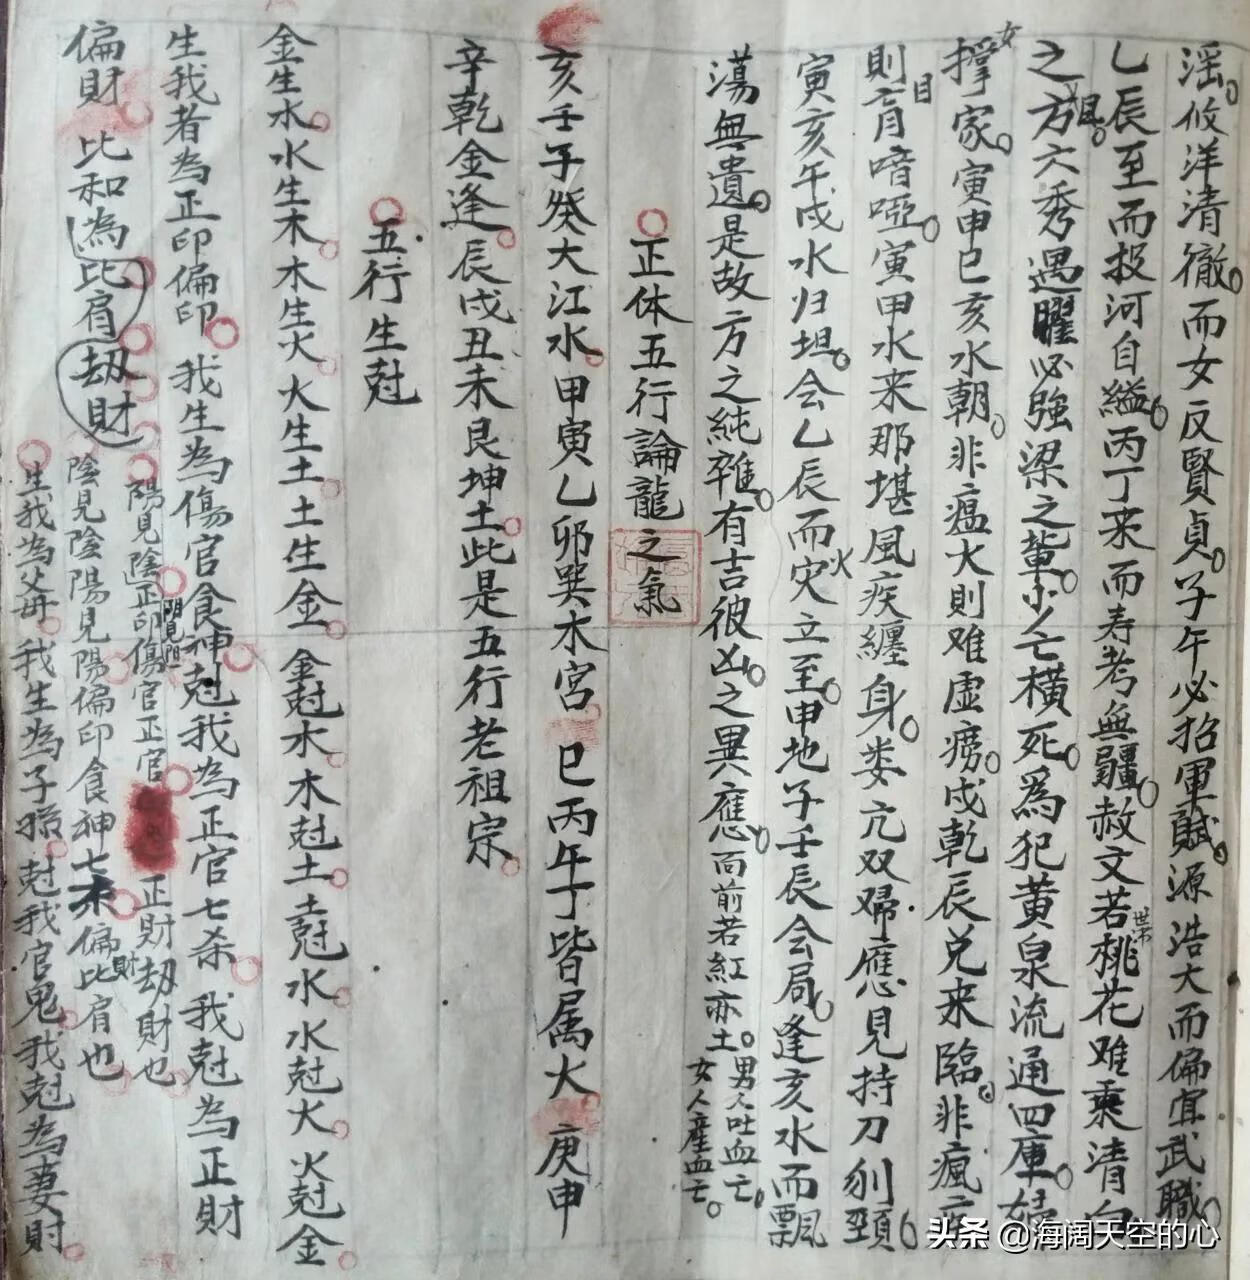 淫攸洋清徹而女反賢貞子午必招軍賊源浩大而偏宜武職
乙辰至而投河自縊丙丁来而寿考無疆赦文若桃花难乘清白
之方六秀遇曜必強梁之輩少亡橫死為犯黄泉流通四庫婦女
撑家寅申巳亥水朝非瘟火則难虚痨戌乾辰兑来臨非瘋疾
則盲目喑啞寅甲水来那堪風疾纏身娄亢双婦應見持刀刎頸
寅亥午戌水归坦会乙辰而火灾立至申地子壬辰会局逢亥水而飄
蕩無遺是故方之純雜有吉彼凶之異應面前若紅赤土男人吐血亡
女人產血亡
正体五行論龍之氣
亥壬子癸大江水甲寅乙卯巽木宮巳丙午丁皆属火庚申
辛乾金逢辰戌丑未艮坤土此是五行老祖宗
五行生尅
金生水水生木木生火火生土土生金金尅木木尅土土尅水水尅火火尅金
生我者為正印偏印我生為傷官食神尅我為正官七杀我尅為正財
偏財比和為比肩劫財
陽見陰正印傷官正官正財劫財也
陰見陰陽見陽偏印食神七杀偏財比肩也
生我為父母我生為子孫尅我官鬼我尅為妻財
头条 @海阔天空的心